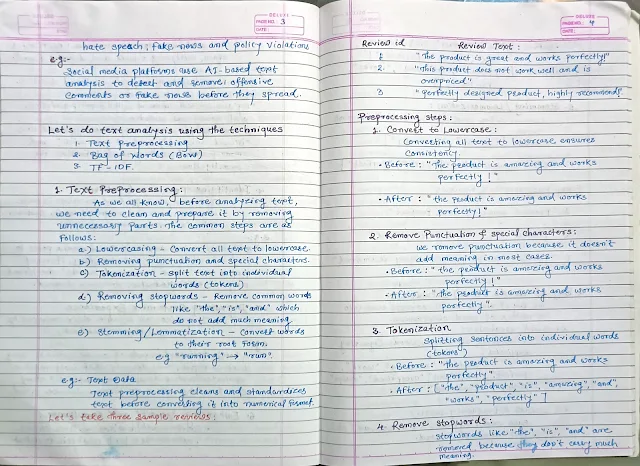 DELUXE
PAGE NO. 3
DATE:
hate speech, fake news and policy violations
e.g:-
Social media platforms use AI-based text
analysis to detect and remove offensive
comments or fake news before they spread.
Let's do text analysis using the techniques
1. Text Preprocessing
2. Bag of Words (BOW)
3. TF-IDF.
1. Text Preprocessing:
As we all know, before analyzing text,
we need to clean and prepare it by removing
unnecessary parts. The common steps are as
follows:
a.) Lowercasing - Convert all text to lowercase.
b) Removing punctuation and special characters.
c) Tokenization - split text into individual
words (tokens)
d) Removing stopwords - Remove common words
like "the", "is", "and" which
do not add much meaning.
e) Stemming/Lemmatization - Convert words
to their root form.
e.g "running" → "run".
e.g:- Text Data
Text preprocessing cleans and standardizes
text before converting it into numerical format.
Let's take three sample reviews:
DELUXE
PAGE NO. 4
DATE:
Review id Review Text:
1. "The product is great and works perfectly!"
2. "This product does not work well and is
overpriced"
3 "perfectly designed product, highly recommend!
Preprocessing steps:
1. Convert to Lowercase:
Converting all text to lowercase ensures
consistency.
• Before: "The product is amazing and works
perfectly!"
• After: "the product is amazing and works
perfectly!"
2. Remove Punctuation & special characters:
we remove punctuation because it doesn't
add meaning in most cases.
• Before: "the product is amazing and works
perfectly!"
• After: "the product is amazing and works
perfectly".
3. Tokenization
Splitting sentences into individual words
(tokens)
• Before: "the product is amazing and works
perfectly"
• After: ["the", "product", "is", "amazing", "and",
"works", "perfectly"]
4. Remove stopwords:
stopwords like "the", "is", "and" are
removed because they don't carry much
meaning.